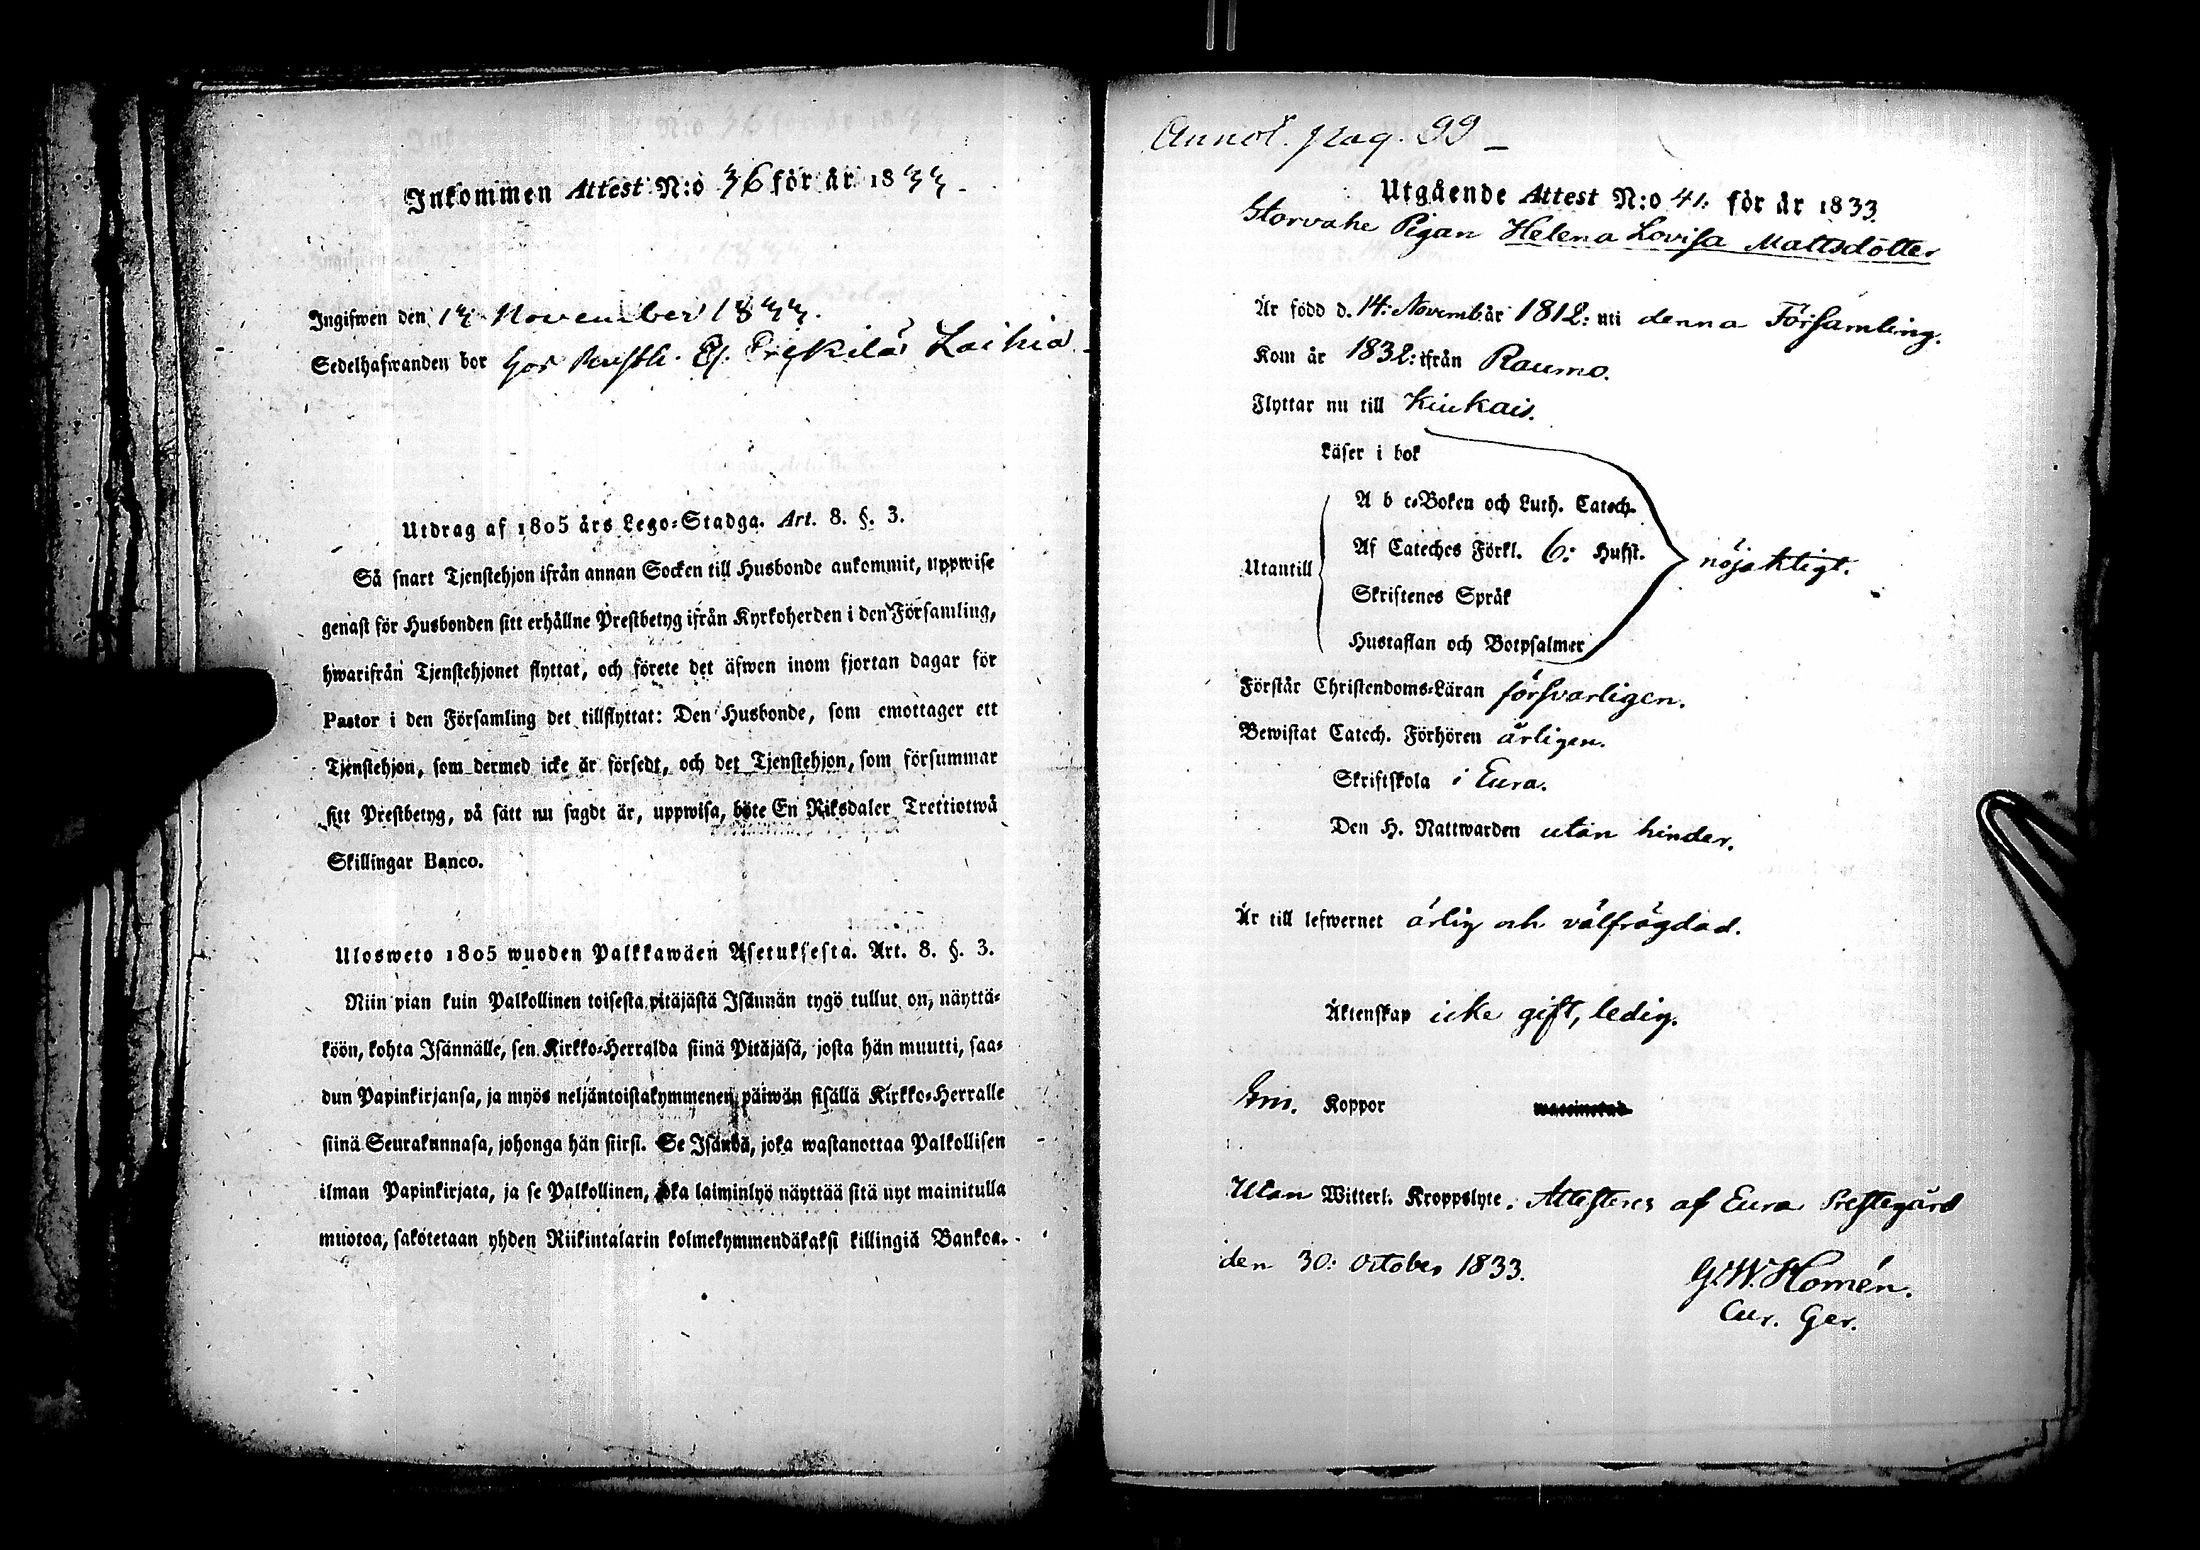 Inkommen Attest N:o 36 för år 1833.
Ingifwen den 13 November 1833.
Sedelhafwanden bor hos Rusth. Laihia
Utdrag af 1805 års Lego=Stadga. Art. 8. §. 3.
Så snart Tjenstehjon ifrån annan Socken till Husbonde ankommit, uppwise
genast för Husbonden sitt erhållne Prestbetyg ifrån Kyrkoherden i den Församling,
hwarifrån Tjenstehjonet flyttat, och förete det äfwen inom fjortan dagar för
Pastor i den Församling det tillflyttat: Den Husbonde, som emottager ett
Tjenstehjon, som dermed icke är försedt, och det Tjenstehjon, som försummar
sitt Prestbetyg, på sätt nu sagdt är, uppwisa, böte En Riksdaler Trettiotwå
Skillingar Banco.
Ulosweto 1805 wuoden Palkkawäen Asetuksesta. Art. 8. §. 3.
Niin pian kuin Palkollinen toisesta pitäjästä Isännän tygö tullut on, näyttä=
köön, kohta Isännälle, sen Kirkko=Herralda siinä Pitäjäsä, josta hän muutti, saa=
dun Papinkirjansa, ja myös neljäntoistakymmenen päiwän sisällä Kirkko=Herralle
siinä Seurakunnasa, johonga hän siirsi. Se Isändä, joka wastanottaa Palkollisen
ilman Papinkirjata, ja se Palkollinen, joka laiminlyö näyttää sitä nyt mainitulla
muotoa, sakotetaan yhden Riikintalarin kolmekymmendäkaksi killingiä Bankoa.
Annot. pag. 99
Utgående Attest N:o 41. för år 1833.
Storvahe Pigan Helena Lovisa Mattsdotter
Är född d. 14: Novemb. år 1812: uti denna Församling.
Kom år 1832: ifrån Raumo.
Flyttar nu till Kiukais.
Läser i bok
A b c=Boken och Luth. Catech.
Af Cateches Förkl. 6: Hufst.
Utantill
nöjaktigt.
Skriftenes Språk
Hustaflan och Botpsalmer
Förstår Christendoms=Läran försvarligen.
Bewistat Catech. Förhören årligen.
Skriftskola i Eura.
Den H. Nattwarden utan hinder.
Är till lefwernet ärlig och välfrägdad.
Äktenskap icke gift, ledig.
Gm. Koppor waccinerad
Utan Witterl. Kroppslyte. Attesteres af Eura Prestegård
den 30: October 1833.
G. W. Homén.
Cur. Ger.